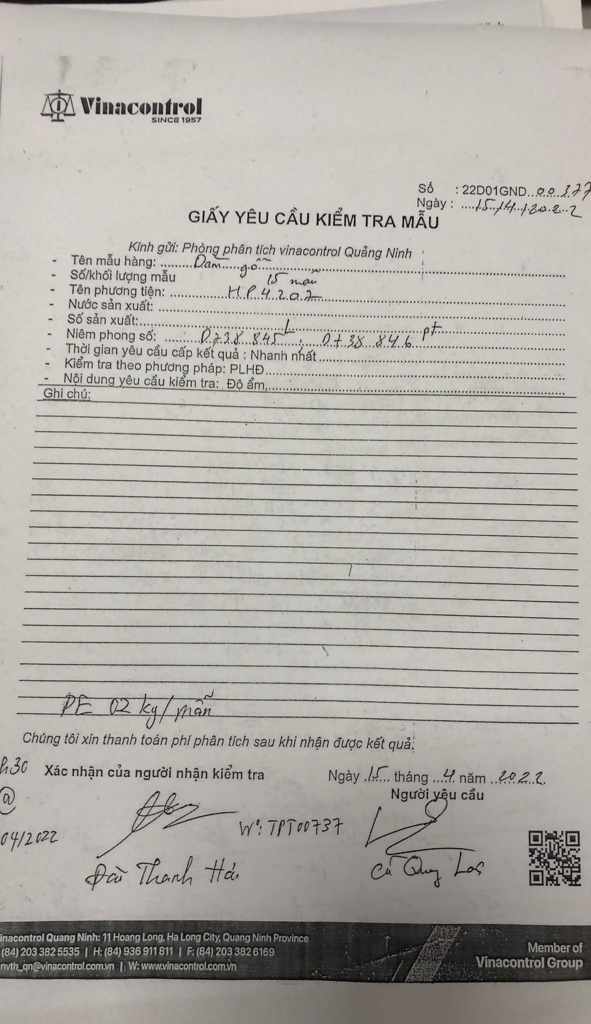 Vinacontrol
SINCE 1957
Số : 22D01GND..00377
Ngày : ....15/4/2022
GIẤY YÊU CẦU KIỂM TRA MẪU
Kính gửi: Phòng phân tích vinacontrol Quảng Ninh
- Tên mẫu hàng: Dăm gỗ
- Số/khối lượng mẫu 15 mẫu
- Tên phương tiện: HP4202
- Nước sản xuất:
- Số sản xuất:
- Niêm phong số: 0738845, 0738846 pt
- Thời gian yêu cầu cấp kết quả : Nhanh nhất
- Kiểm tra theo phương pháp: PLHĐ
- Nội dung yêu cầu kiểm tra: Độ ẩm
Ghi chú:
PE 02 kg/mẫu
Chúng tôi xin thanh toán phí phân tích sau khi nhận được kết quả.
h30 Xác nhận của người nhận kiểm tra Ngày 15 tháng 4 năm 2022
Người yêu cầu
04/2022 Nº: TPT00737
Thanh Hải
inacontrol Quang Ninh: 11 Hoang Long, Ha Long City, Quang Ninh Province
(84) 203 382 5535 | H: (84) 936 911 811 | F: (84) 203 382 6169
nvth_qn@vinacontrol.com.vn | W: www.vinacontrol.com.vn
Member of
Vinacontrol Group